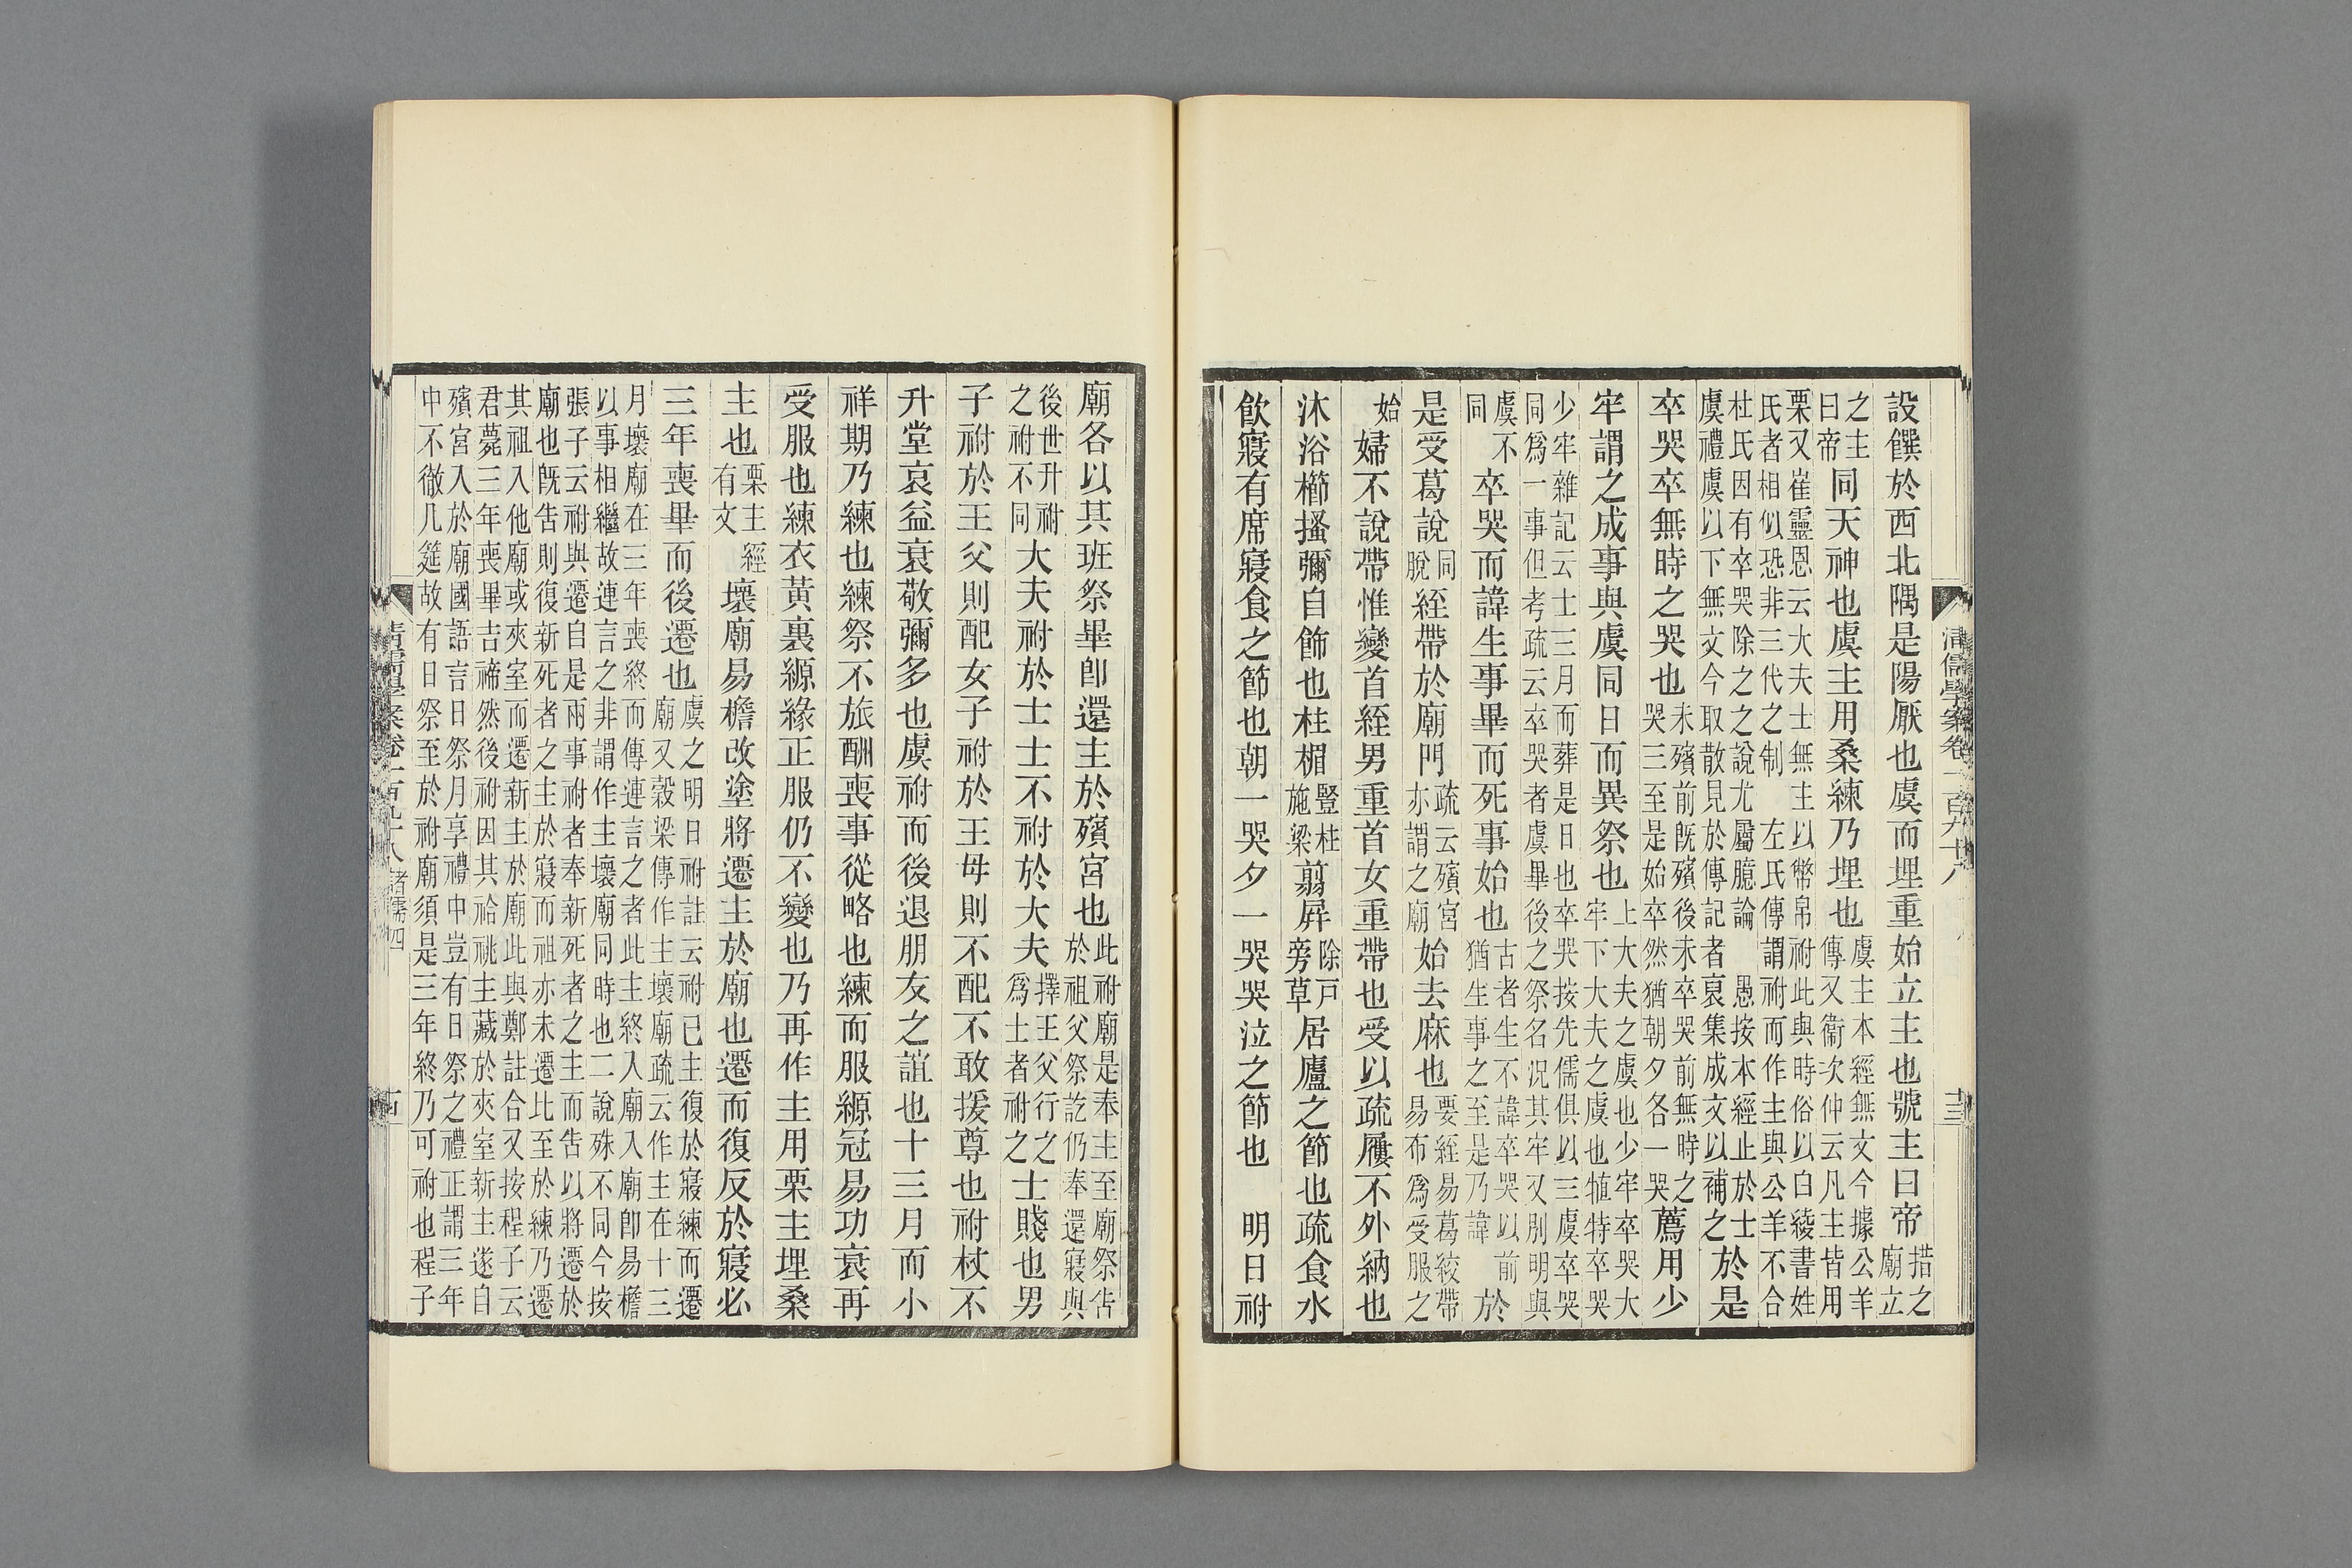 清儒學案卷一百九十八 十三
設饌於西北隅是陽厭也虞而埋重始立主也號主曰帝措之廟立
之主曰帝同天神也虞主用桑練乃埋也虞主本經無文今據公羊傳又衞次仲云凡主皆用
栗又崔靈恩云大夫士無主以幣帛祔此與時俗以白綾書姓
氏者相似恐非三代之制 左氏傳謂祔而作主與公羊不合
杜氏因有卒哭除之之說尤屬臆論 愚按本經止於士
虞禮虞以下無文今取散見於傳記者裒集成文以補之於是
卒哭卒無時之哭也未殯前旣殯後未卒哭前無時之哭三至是始卒然猶朝夕各一哭薦用少
牢謂之成事與虞同日而異祭也上大夫之虞也少牢卒哭大牢下大夫之虞也犆特卒哭
少牢雜記云士三月而葬是日也卒哭按先儒俱以三虞卒哭
同爲一事但考疏云卒哭者虞畢後之祭名況其牢又別明與
虞不同卒哭而諱生事畢而死事始也古者生不諱卒哭以前猶生事之至是乃諱於
是受葛說同脫絰帶於廟門疏云殯宮亦謂之廟始去麻也要絰易葛絞帶易布爲受服之
始婦不說帶惟變首絰男重首女重帶也受以疏屨不外納也
沐浴櫛搔彌自飾也柱楣豎柱施梁翦屛除戸旁草居廬之節也疏食水
飮寢有席寢食之節也朝一哭夕一哭哭泣之節也 明日祔
廟各以其班祭畢卽還主於殯宮也此祔廟是奉主至廟祭告於祖父祭訖仍奉還寢與
後世升祔之祔不同大夫祔於士士不祔於大夫擇王父行之爲士者祔之士賤也男
子祔於王父則配女子祔於王母則不配不敢援尊也祔杖不
升堂哀益衰敬彌多也虞祔而後退朋友之誼也十三月而小
祥期乃練也練祭不旅酬喪事從略也練而服縓冠易功衰再
受服也練衣黃裏縓緣正服仍不變也乃再作主用栗主埋桑
主也栗主經有文壞廟易檐改塗將遷主於廟也遷而復反於寢必
三年喪畢而後遷也虞之明日祔註云祔已主復於寢練而遷廟又穀梁傳作主壞廟疏云作主在十三
月壞廟在三年喪終而傳連言之者此主終入廟入廟卽易檐
以事相繼故連言之非謂作主壞廟同時也二說殊不同今按
張子云祔與遷自是兩事祔者奉新死者之主而告以將遷於
廟也旣告則復新死者之主於寢而祖亦未遷比至於練乃遷
其祖入他廟或夾室而遷新主於廟此與鄭註合又按程子云
君薨三年喪畢吉禘然後祔因其祫祧主藏於夾室新主遂自
殯宮入於廟國語言日祭月享禮中豈有日祭之禮正謂三年
中不徹几筵故有日祭至於祔廟須是三年終乃可祔也程子
清儒學案卷一百九十八 諸儒四 十四